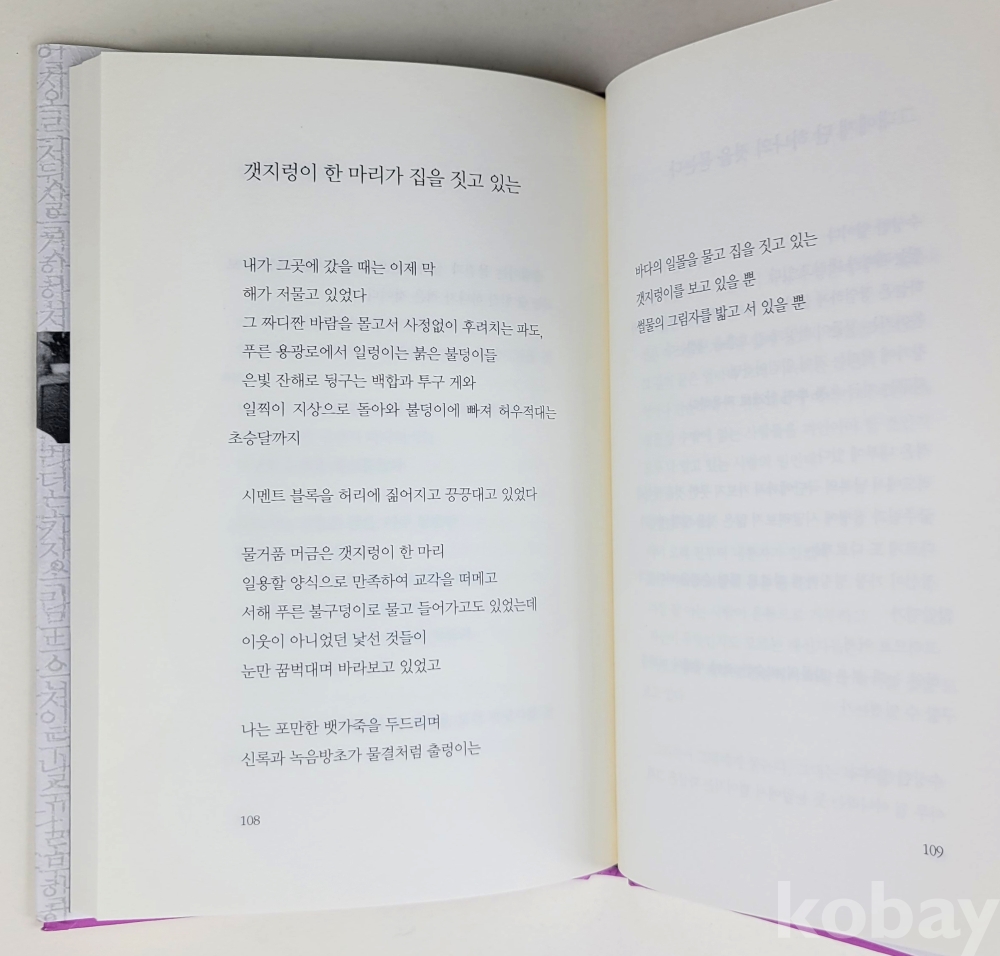 갯지렁이 한 마리가 집을 짓고 있는
내가 그곳에 갔을 때는 이제 막
해가 저물고 있었다
그 짜디짠 바람을 몰고서 사정없이 후려치는 파도,
푸른 용광로에서 일렁이는 붉은 불덩이들
은빛 잔해로 뒹구는 백합과 투구 게와
일찍이 지상으로 돌아와 불덩이에 빠져 허우적대는
초승달까지
시멘트 블록을 허리에 짊어지고 끙끙대고 있었다
물거품 머금은 갯지렁이 한 마리
일용할 양식으로 만족하여 교각을 떠메고
서해 푸른 불구덩이로 물고 들어가고도 있었는데
이웃이 아니었던 낯선 것들이
눈만 꿈벅대며 바라보고 있었고
나는 포만한 뱃가죽을 두드리며
신록과 녹음방초가 물결처럼 출렁이는
108
바다의 일몰을 물고 집을 짓고 있는
갯지렁이를 보고 있을 뿐
썰물의 그림자를 밟고 서 있을 뿐
109
kobay